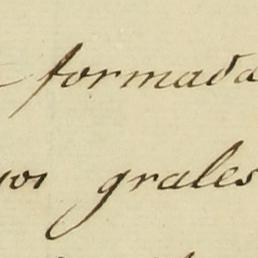 formada
grales